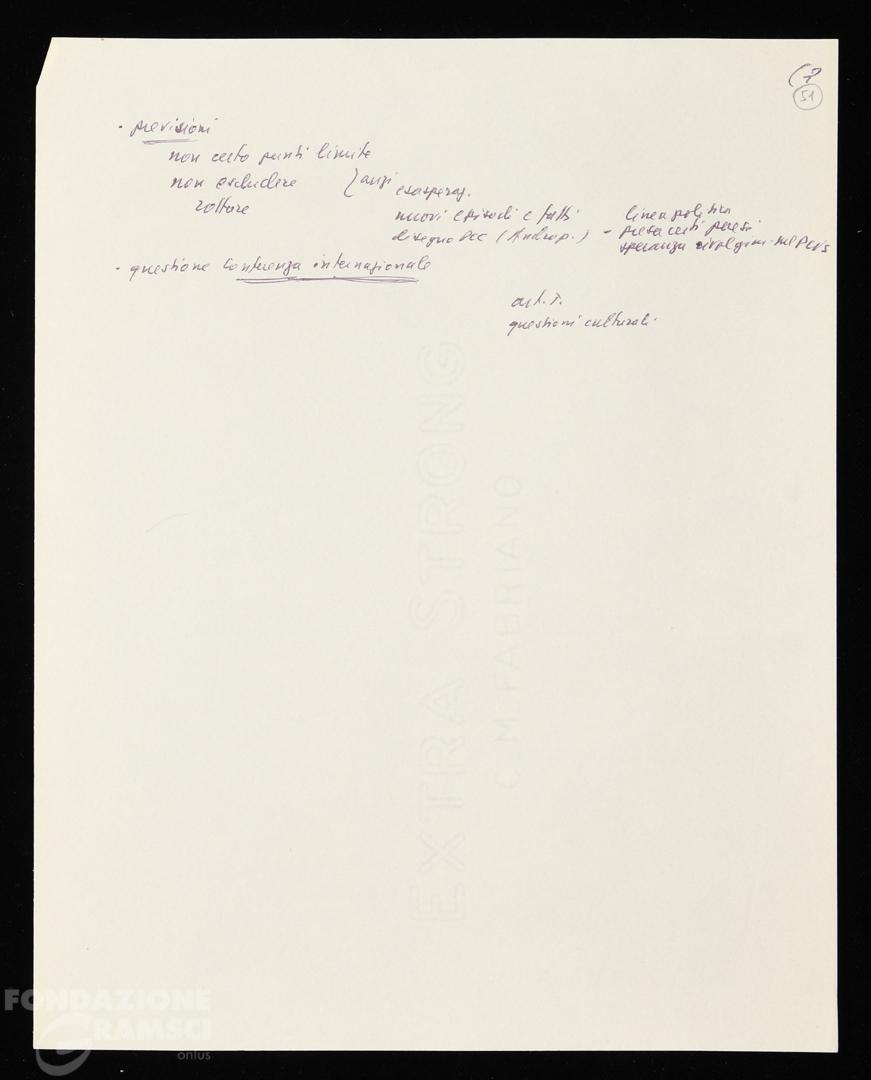 (7
51
· previsioni
non certo punti limite
non escludere anzi esasperaz.
rotture
nuovi episodi e fatti linea politica
disegno PCC (Androp.) - presa certi paesi
speranza rivolgim. nel PCUS
· questione Conferenza internazionale
questioni culturali
EXTRA STRONG
C. M. FABRIANO
FONDAZIONE
GRAMSCI
onlus